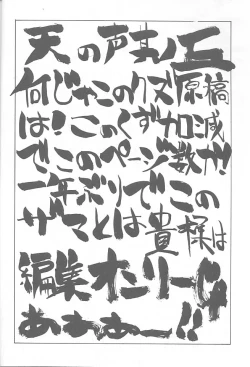 天の声其ノ二
何じゃこのクヌ原稿
は!このくずカロ減
でこのページ数か!
一年ぶりでこの
ザマとは貴様は
編集オンリーじゃ
あぁぁー!!